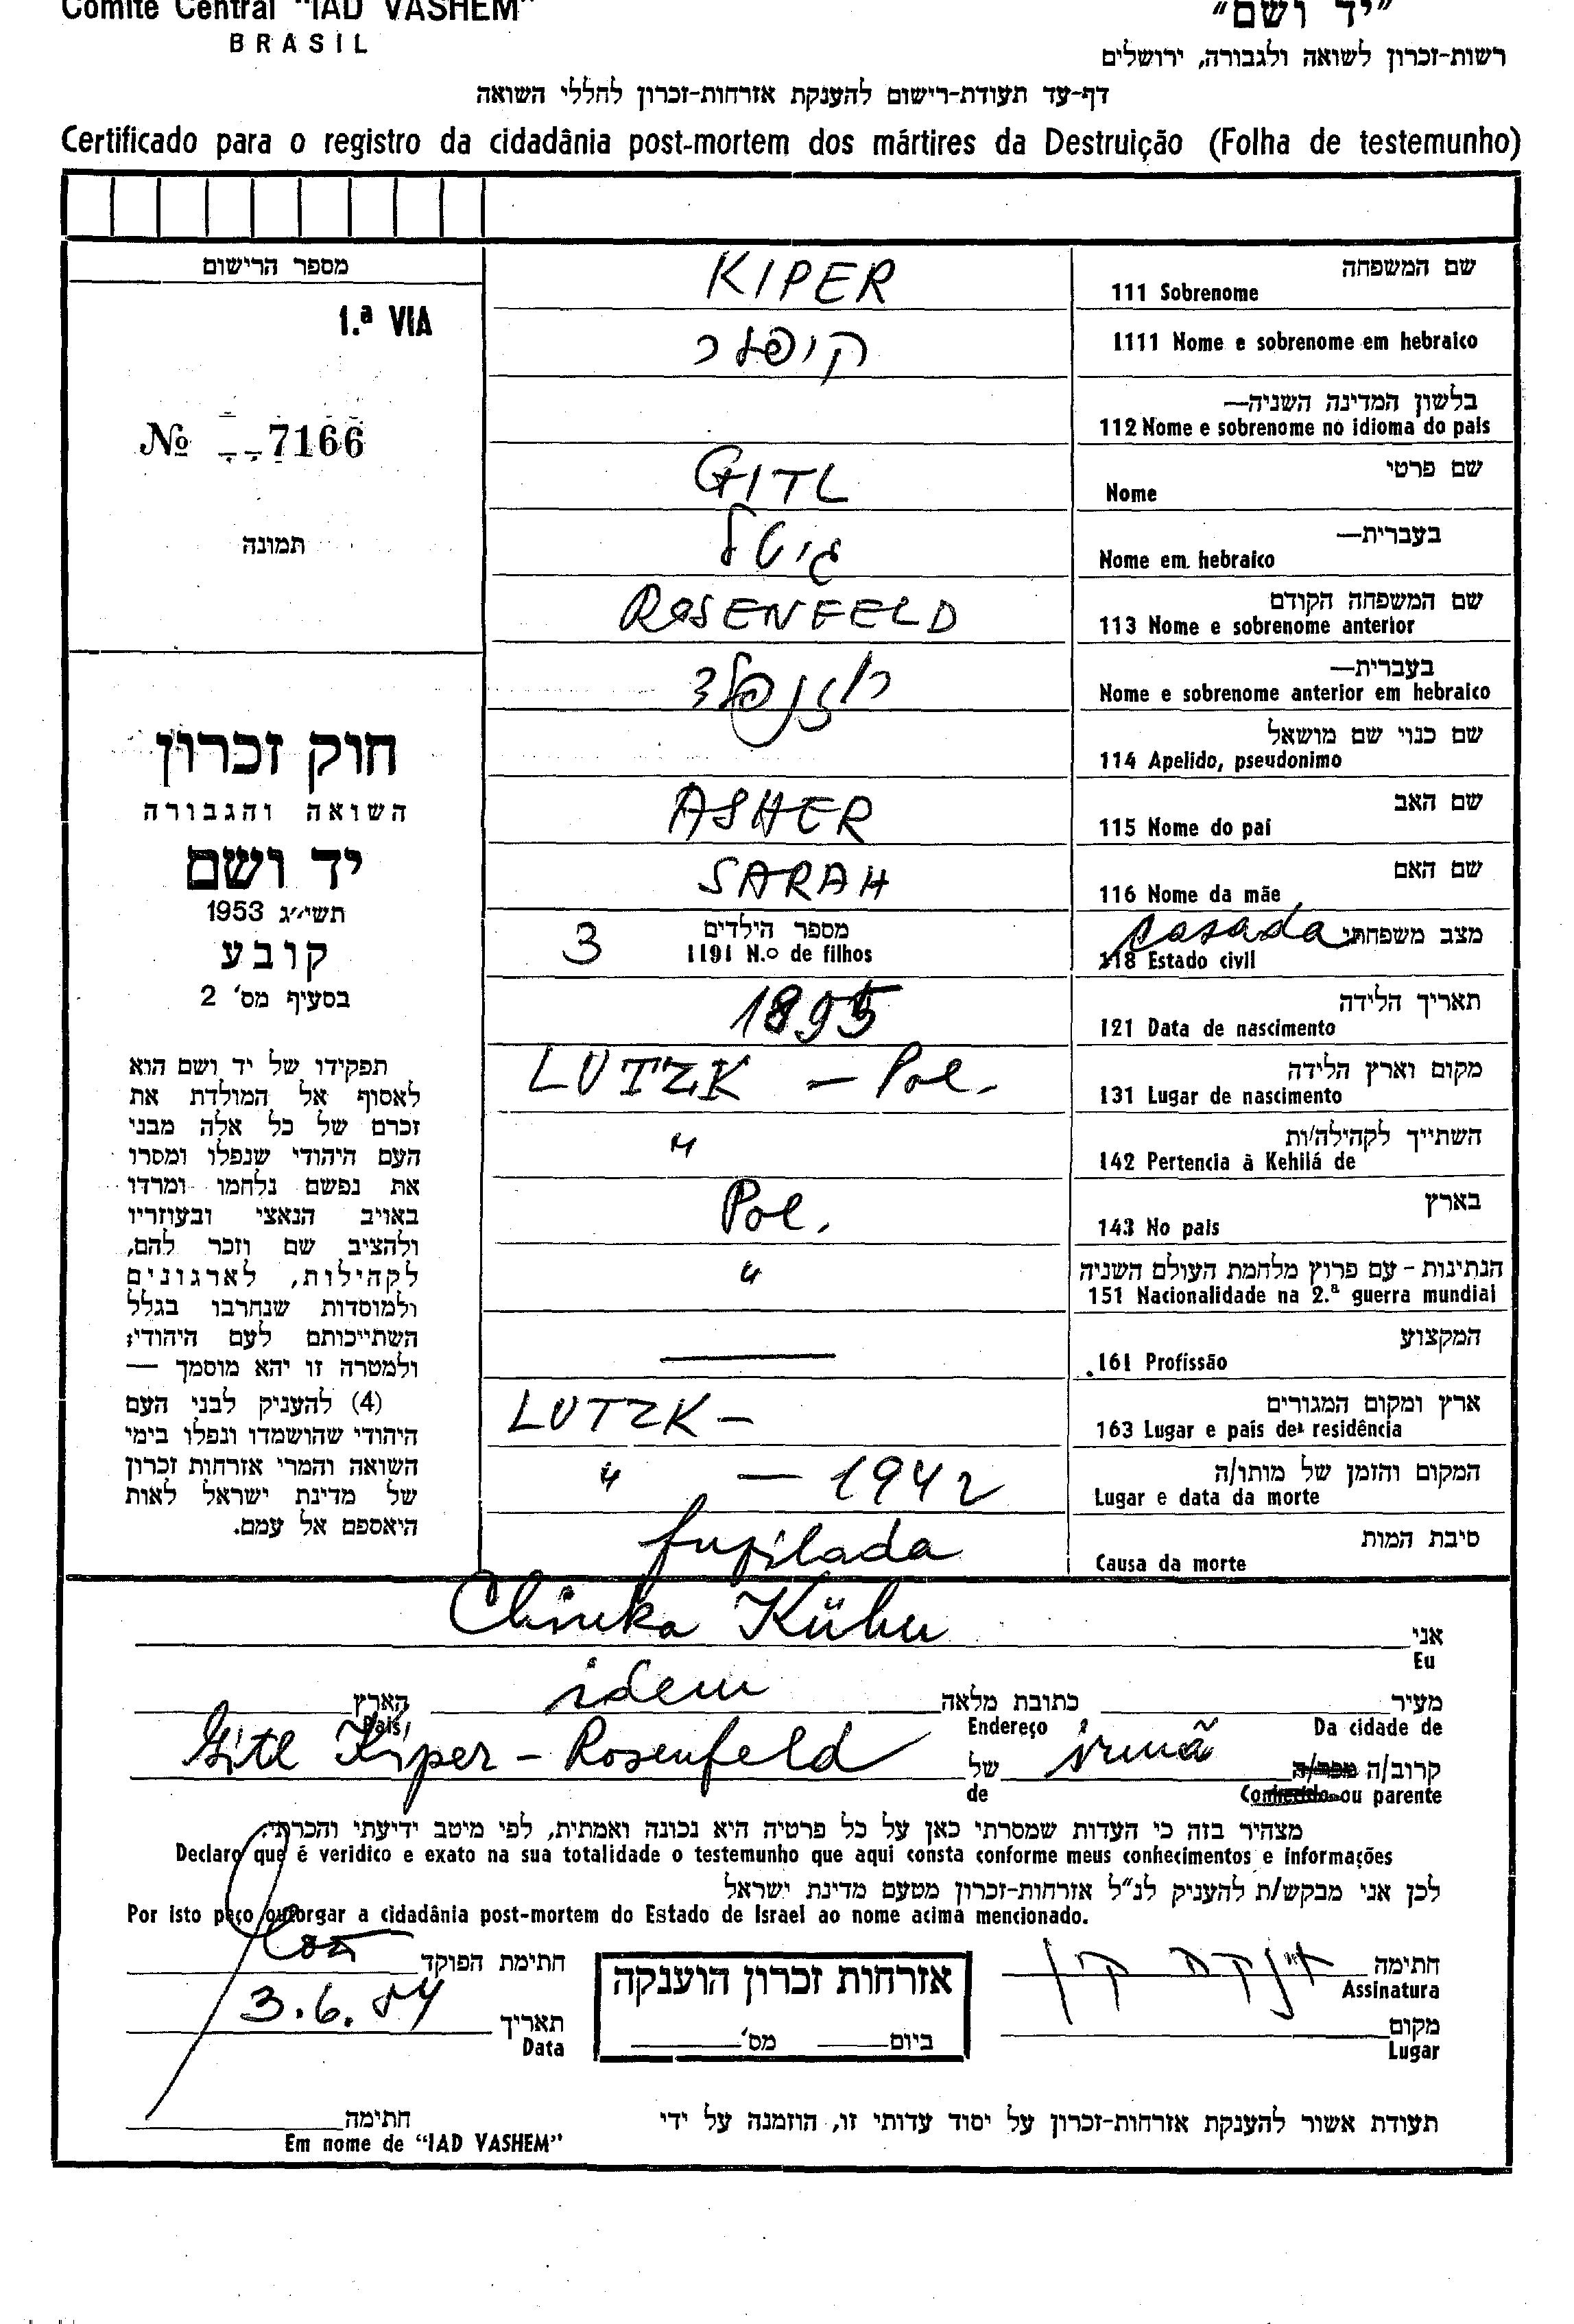 Comité Central "IAD VASHEM"
BRASIL
"יד ושם"
רשות-זכרון לשואה ולגבורה, ירושלים
דף-עד תעודת-רישום להענקת אזרחות-זכרון לחללי השואה
Certificado para o registro da cidadânia post-mortem dos mártires da Destruição (Folha de testemunho)
מספר הרישום
1.ª VIA
№ 7166
תמונה
חוק זכרון
השואה והגבורה
יד ושם
תשי״ג 1953
קובע
בסעיף מס' 2
תפקידו של יד ושם הוא
לאסוף אל המולדת את
זכרם של כל אלה מבני
העם היהודי שנפלו ומסרו
את נפשם נלחמו ומרדו
באויב הנאצי ובעוזריו
ולהציב שם וזכר להם,
לקהילות, לארגונים
ולמוסדות שנחרבו בגלל
השתייכותם לעם היהודי;
ולמטרה זו יהא מוסמך —
(4) להעניק לבני העם
היהודי שהושמדו ונפלו בימי
השואה והמרי אזרחות זכרון
של מדינת ישראל לאות
היאספם אל עמם.
שם המשפחה
111 Sobrenome KIPER
1111 Nome e sobrenome em hebraico קיפער
בלשון המדינה השניה—
112 Nome e sobrenome no idioma do pais
שם פרטי
Nome GITL
בעברית—
Nome em hebraico גיטל
שם המשפחה הקודם
113 Nome e sobrenome anterior ROSENFELD
בעברית—
Nome e sobrenome anterior em hebraico רוזנפלד
שם כנוי שם מושאל
114 Apelido, pseudonimo
שם האב
115 Nome do pai ASHER
שם האם
116 Nome da mãe SARAH
מצב משפחתי casada
118 Estado civil
מספר הילדים
1191 N.o de filhos 3
תאריך הלידה
121 Data de nascimento 1895
מקום וארץ הלידה
131 Lugar de nascimento LUTZK – Pol.
השתייך לקהילה/ות
142 Pertencia à Kehilá de "
בארץ
143 No pais Pol.
הנתינות - עם פרוץ מלחמת העולם השניה
151 Nacionalidade na 2.ª guerra mundial "
המקצוע
161 Profissão —
ארץ ומקום המגורים
163 Lugar e pais de residência LUTZK –
המקום והזמן של מותו/ה
Lugar e data da morte " — 1942
סיבת המות
Causa da morte fuzilada
אני
Eu Chinka Kühn
מעיר כתובת מלאה idem הארץ
Da cidade de Endereço Pais
קרוב/ה irmã של Gitl Kiper – Rosenfeld
Conhecido ou parente de
מצהיר בזה כי העדות שמסרתי כאן על כל פרטיה היא נכונה ואמתית, לפי מיטב ידיעתי והכרתי.
Declaro que é veridico e exato na sua totalidade o testemunho que aqui consta conforme meus conhecimentos e informações
לכן אני מבקש/ת להעניק לנ"ל אזרחות-זכרון מטעם מדינת ישראל
Por isto peço outorgar a cidadânia post-mortem do Estado de Israel ao nome acima mencionado.
חתימה
Assinatura
אזרחות זכרון הוענקה
ביום מס'
חתימת הפוקד
מקום
Lugar
תאריך 3.6.84
Data
תעודת אשור להענקת אזרחות-זכרון על יסוד עדותי זו, הוזמנה על ידי
חתימה
Em nome de "IAD VASHEM"